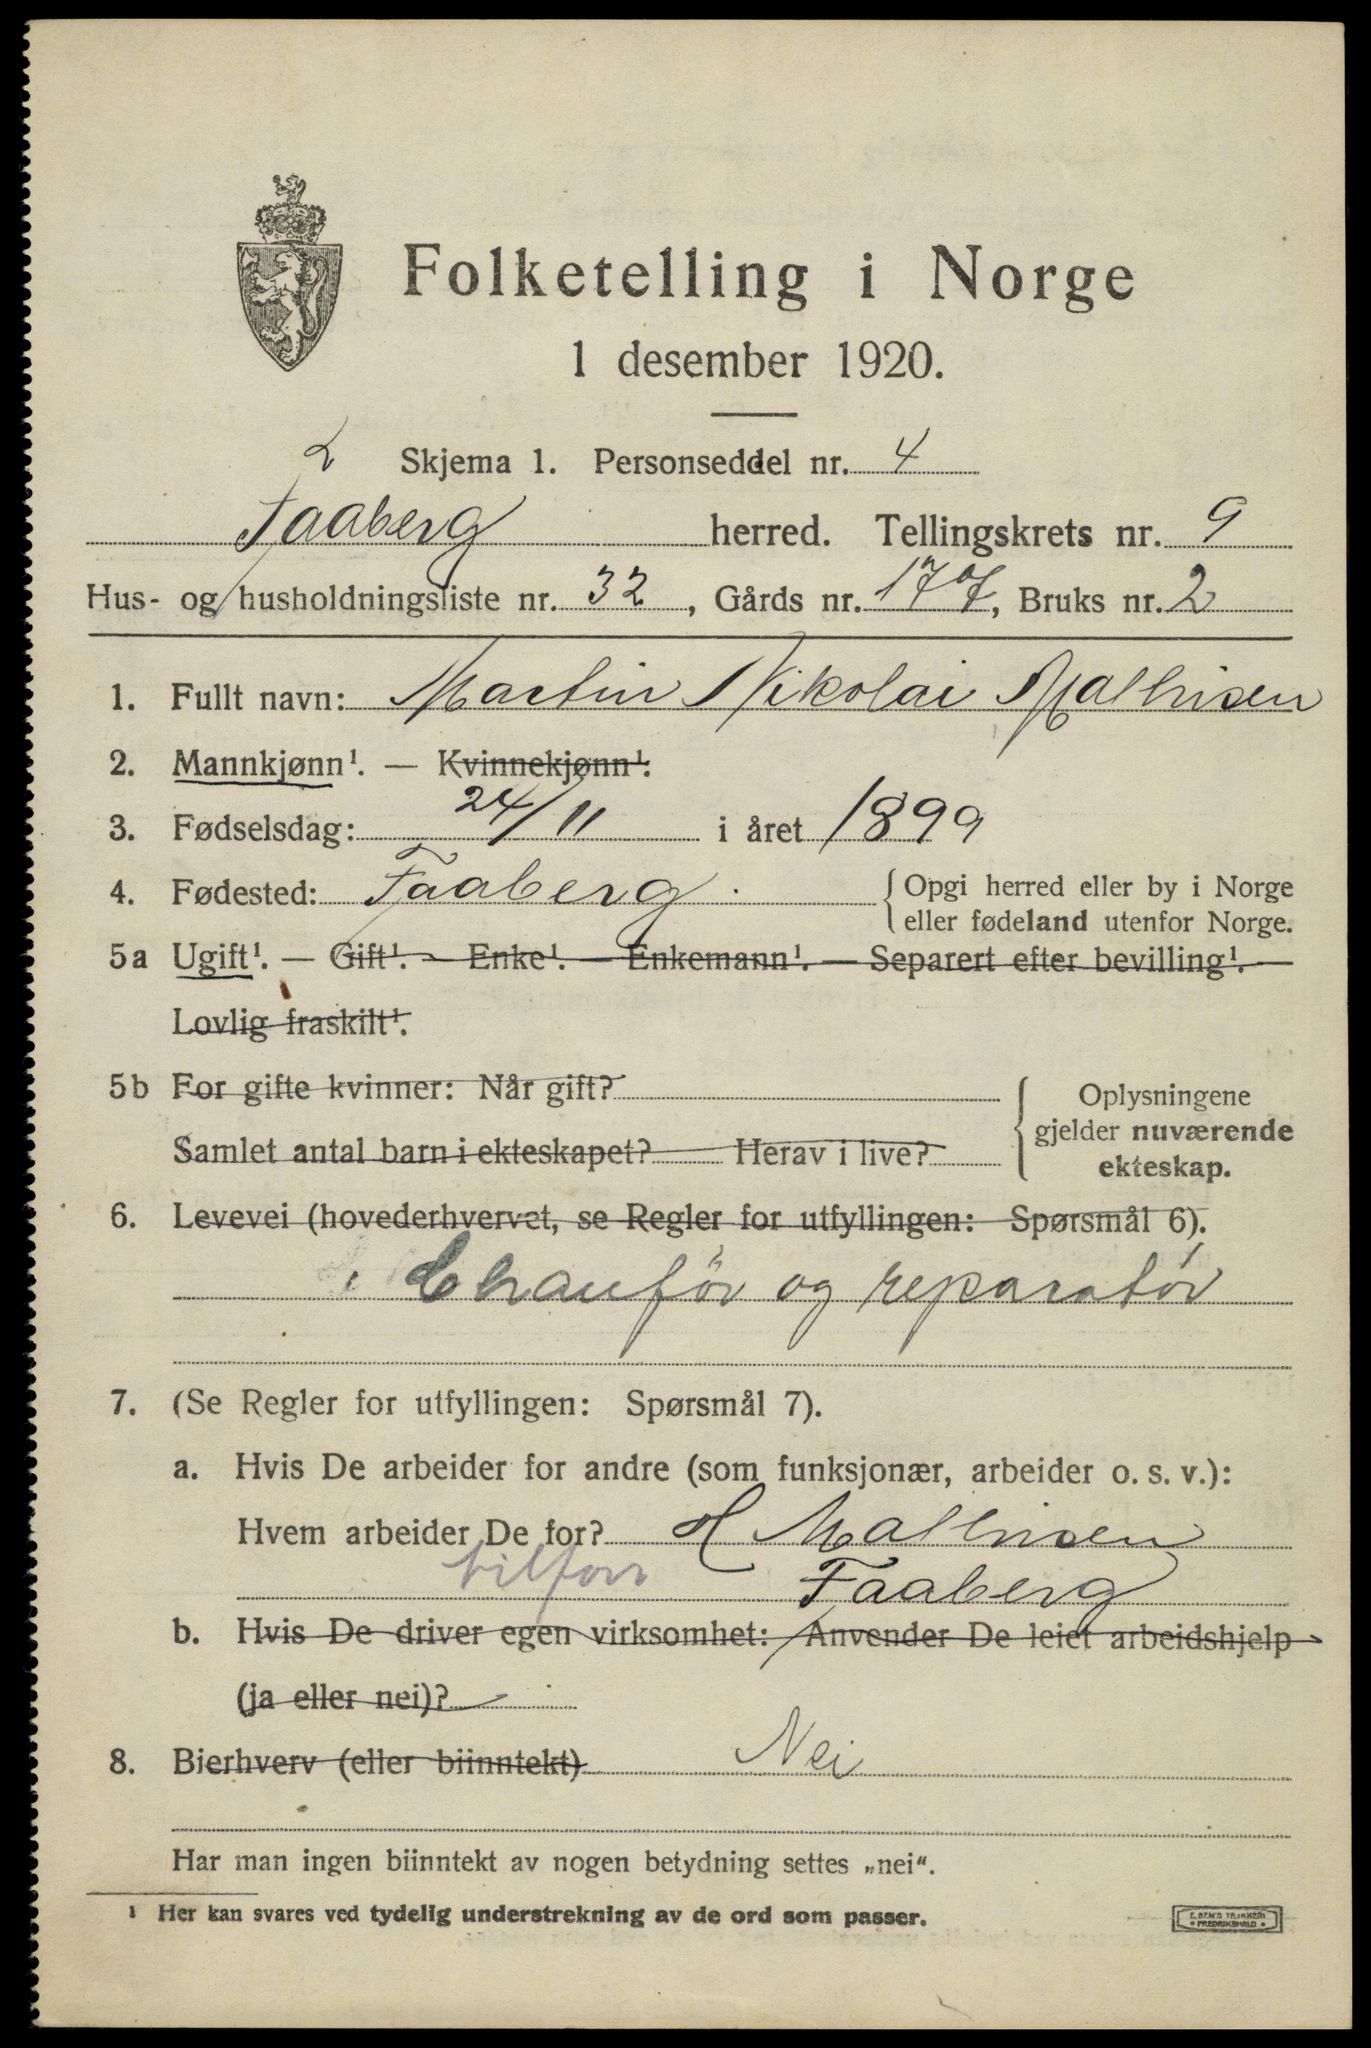 Folketelling i Norge
1 desember 1920.
2 Skjema 1. Personseddel nr. 4
Faaberg herred. Tellingskrets nr. 9
Hus- og husholdningsliste nr. 32, Gårds nr. 177, Bruks nr. 2
1. Fullt navn: Martin Nikolai Mathisen
2. Mannkjønn¹. — Kvinnekjønn¹.
3. Fødselsdag: 24/11 i året 1899
4. Fødested: Faaberg. { Opgi herred eller by i Norge
eller fødeland utenfor Norge.
5a Ugift¹. — Gift¹. — Enke¹. — Enkemann¹. — Separert efter bevilling¹. —
Lovlig fraskilt¹.
5b For gifte kvinner: Når gift?
Samlet antal barn i ekteskapet? Herav i live?
{ Oplysningene
gjelder nuværende
ekteskap.
6. Levevei (hovederhvervet, se Regler for utfyllingen: Spørsmål 6).
Chauffør og reparatør
7. (Se Regler for utfyllingen: Spørsmål 7).
a. Hvis De arbeider for andre (som funksjonær, arbeider o. s. v.):
Hvem arbeider De for? H Mathisen
Faaberg
b. Hvis De driver egen virksomhet: Anvender De leiet arbeidshjelp
(ja eller nei)?
8. Bierhverv (eller biinntekt) Nei
Har man ingen biinntekt av nogen betydning settes „nei“.
¹ Her kan svares ved tydelig understrekning av de ord som passer.
E. SEM'S TRYKKERI
• FREDRIKSHALD •